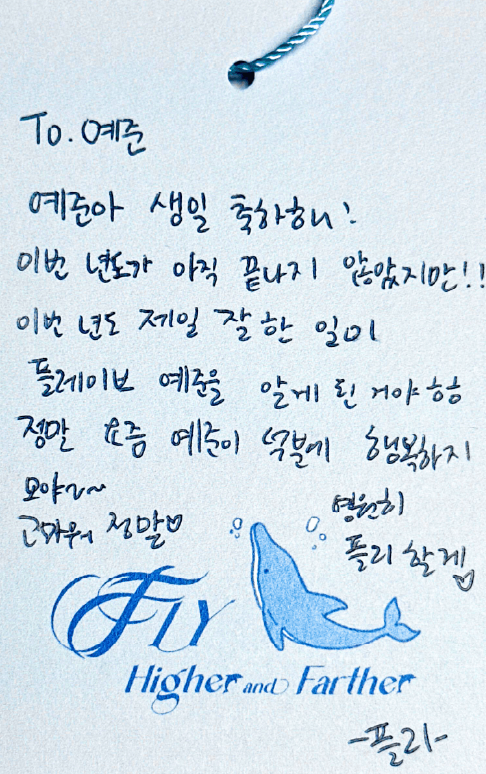 To. 예준
예준아 생일 축하해!
이번 년도가 아직 끝나지 않았지만!!
이번 년도 제일 잘 한 일이
플레이브 예준을 알게 된 거야 ㅎㅎ
정말 요즘 예준이 덕분에 행복하지
모야~~
고마워 정말♡
영원히
플리 할게♡
FLY
Higher and Farther
-플리-